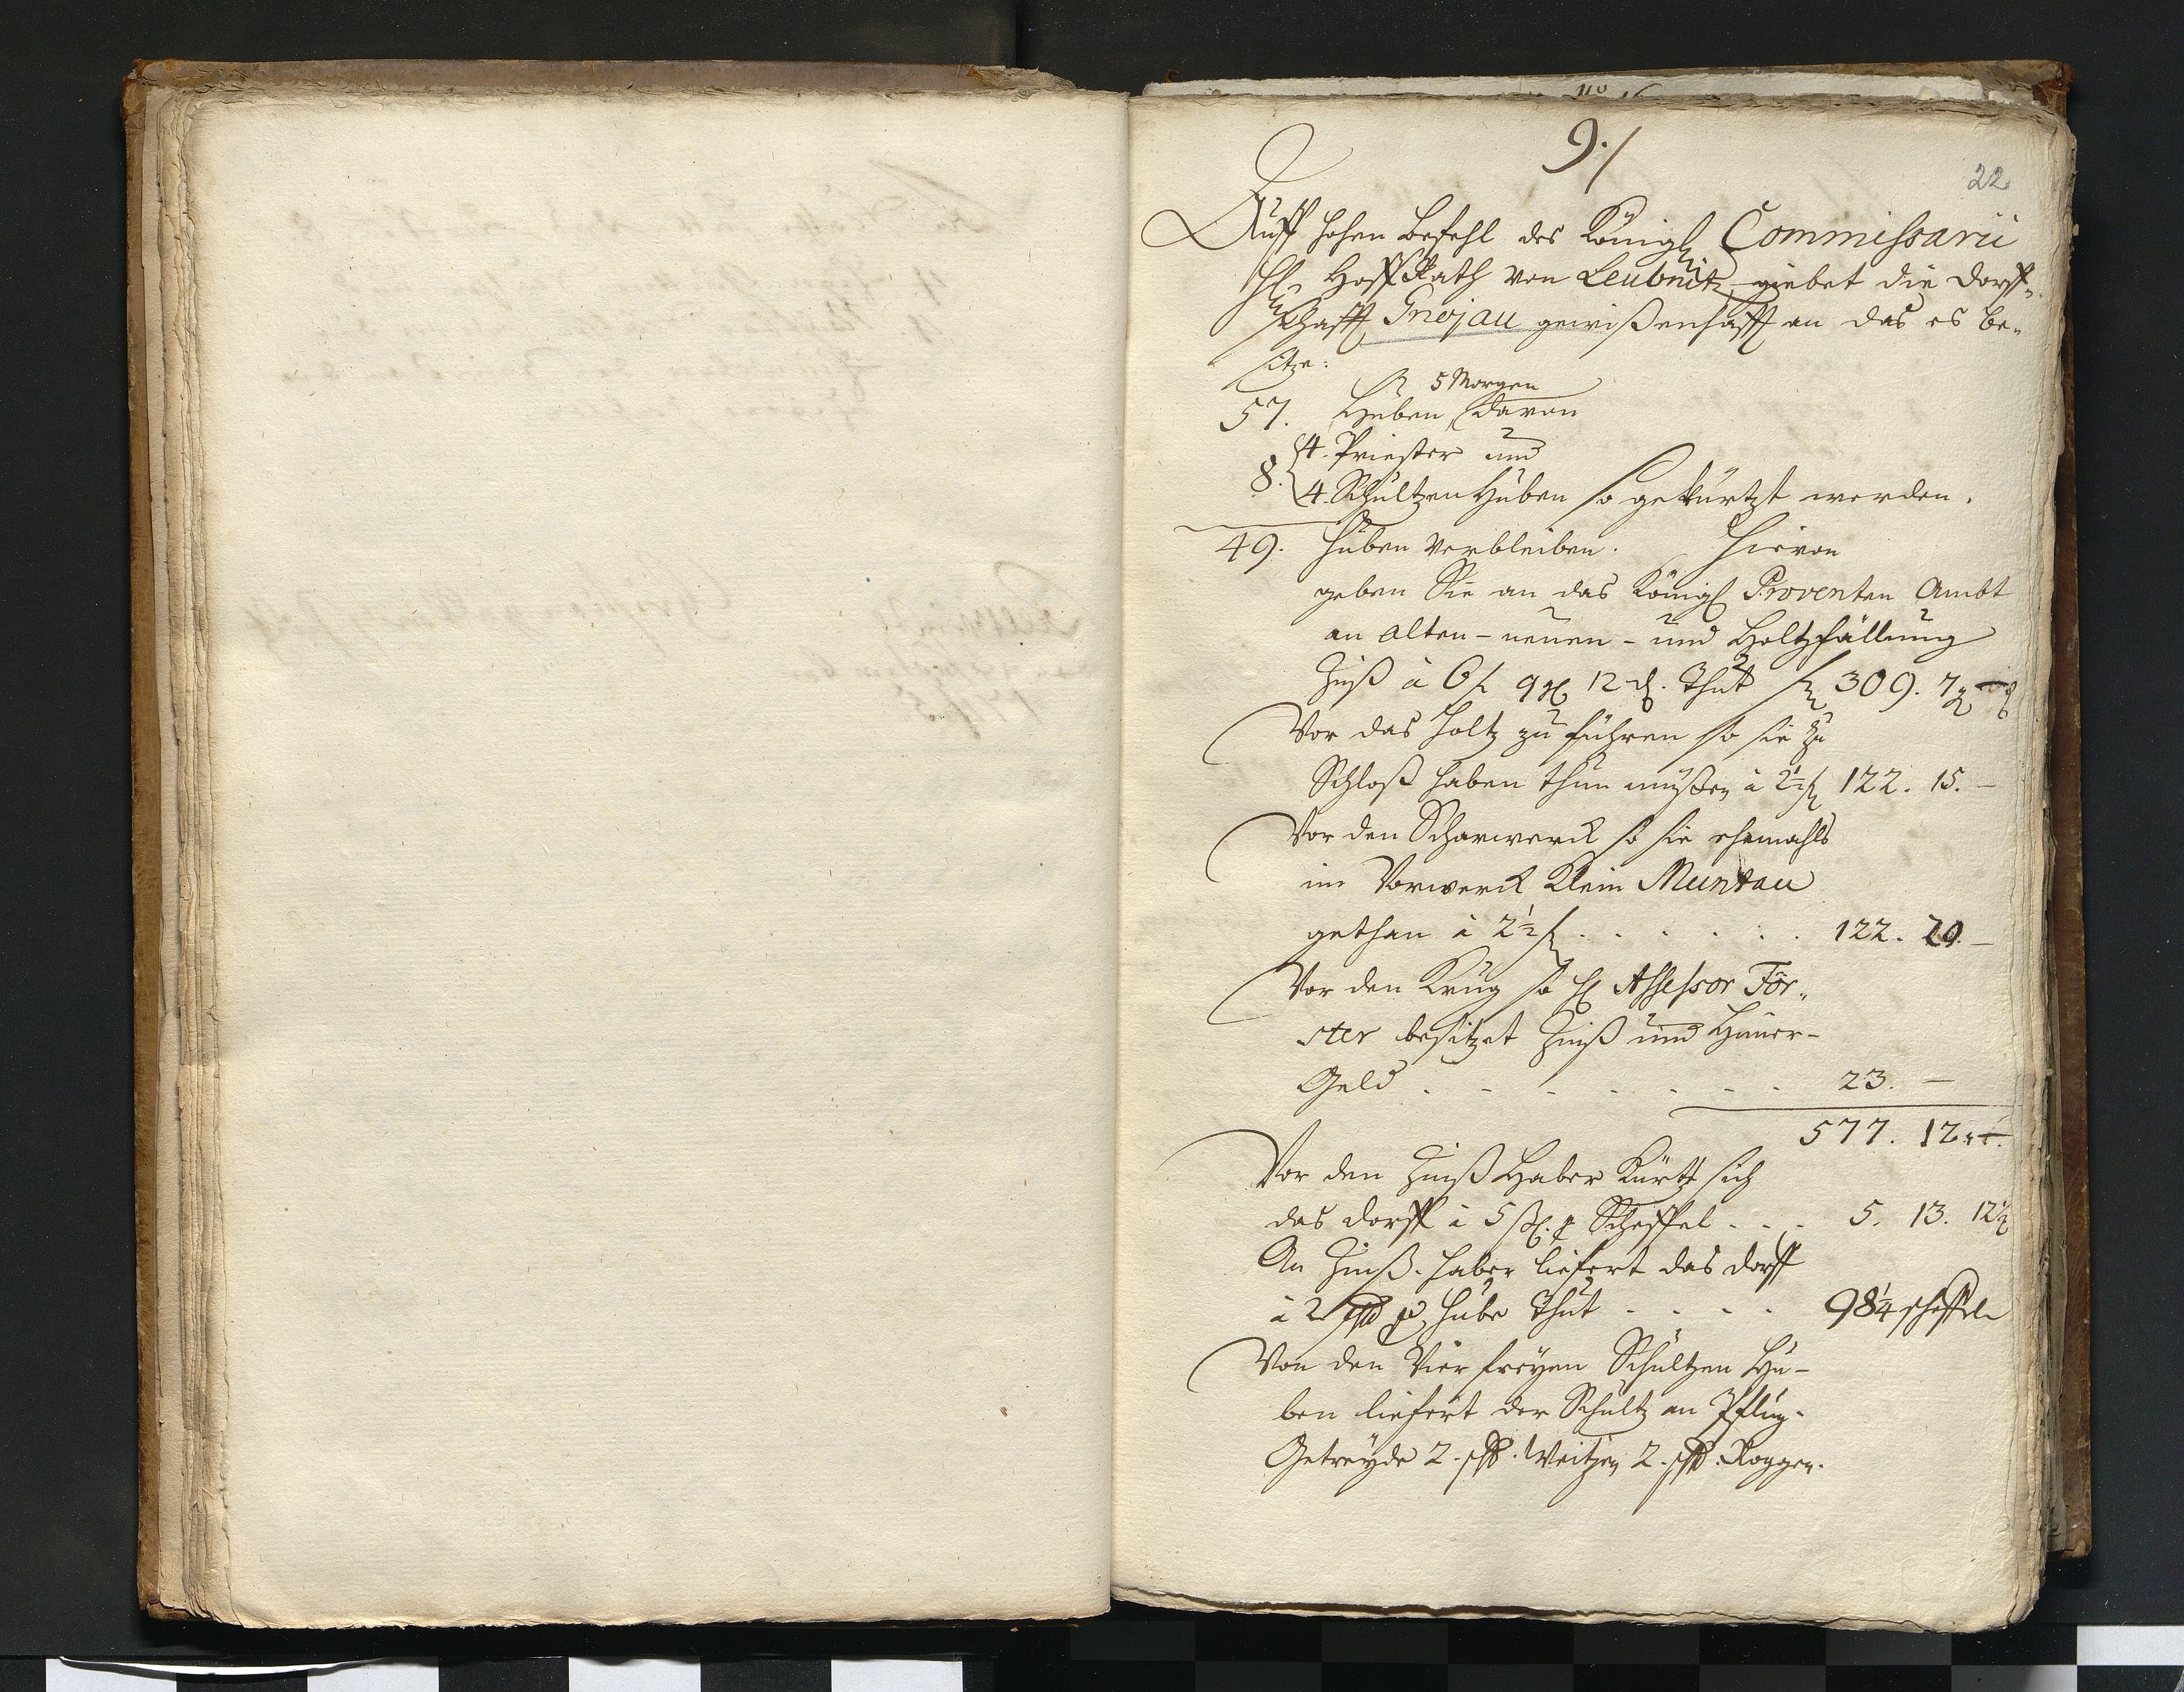 9./
22
Auff hohen Befehl des Königl Commissarii
H. Hoff Rath von Leubnitz giebet die Dorff-
schafft Gnojau gewißenhafft an das es be-
sitze:
5 Morgen
57. Huben, davon
8. 4. Priester und
4. Schultzen Huben so gekürtzt werden.
49. Huben verbleiben. Hievon
geben Sie an das Königl Proventen Ambt
an alten- neuen- und Holtzfällung
Zinß à 6 f 9 gl 12 d. Thut f 309. 7½
Vor das Holtz zu führen so sie zu
Schloß haben thun müßen à 2½ f 122. 15. –
Vor den Scharwerck so sie ehemahls
im Vorwerck Klein Muntau
gethan à 2½ f . . . . . . 122. 20. –
Vor den Krug so H Assessor För„
ster besitzet Zinß und Hüner-
Geld . - - - - - - 23. –
577. 12
Vor den Zinß Haber Kürtzt sich
das Dorff à 5 ßl. p Scheffel . . . 5. 13. 12½
An Zinß-Haber liefert das Dorff
à 2 schfl p Hube Thut - - - - 98¼ scheffel
Von den Vier freyen Schultzen Hu-
ben liefert der Schultz an Pflug-
Getreyde 2. schfl. Weitzen 2. schfl. Roggen.